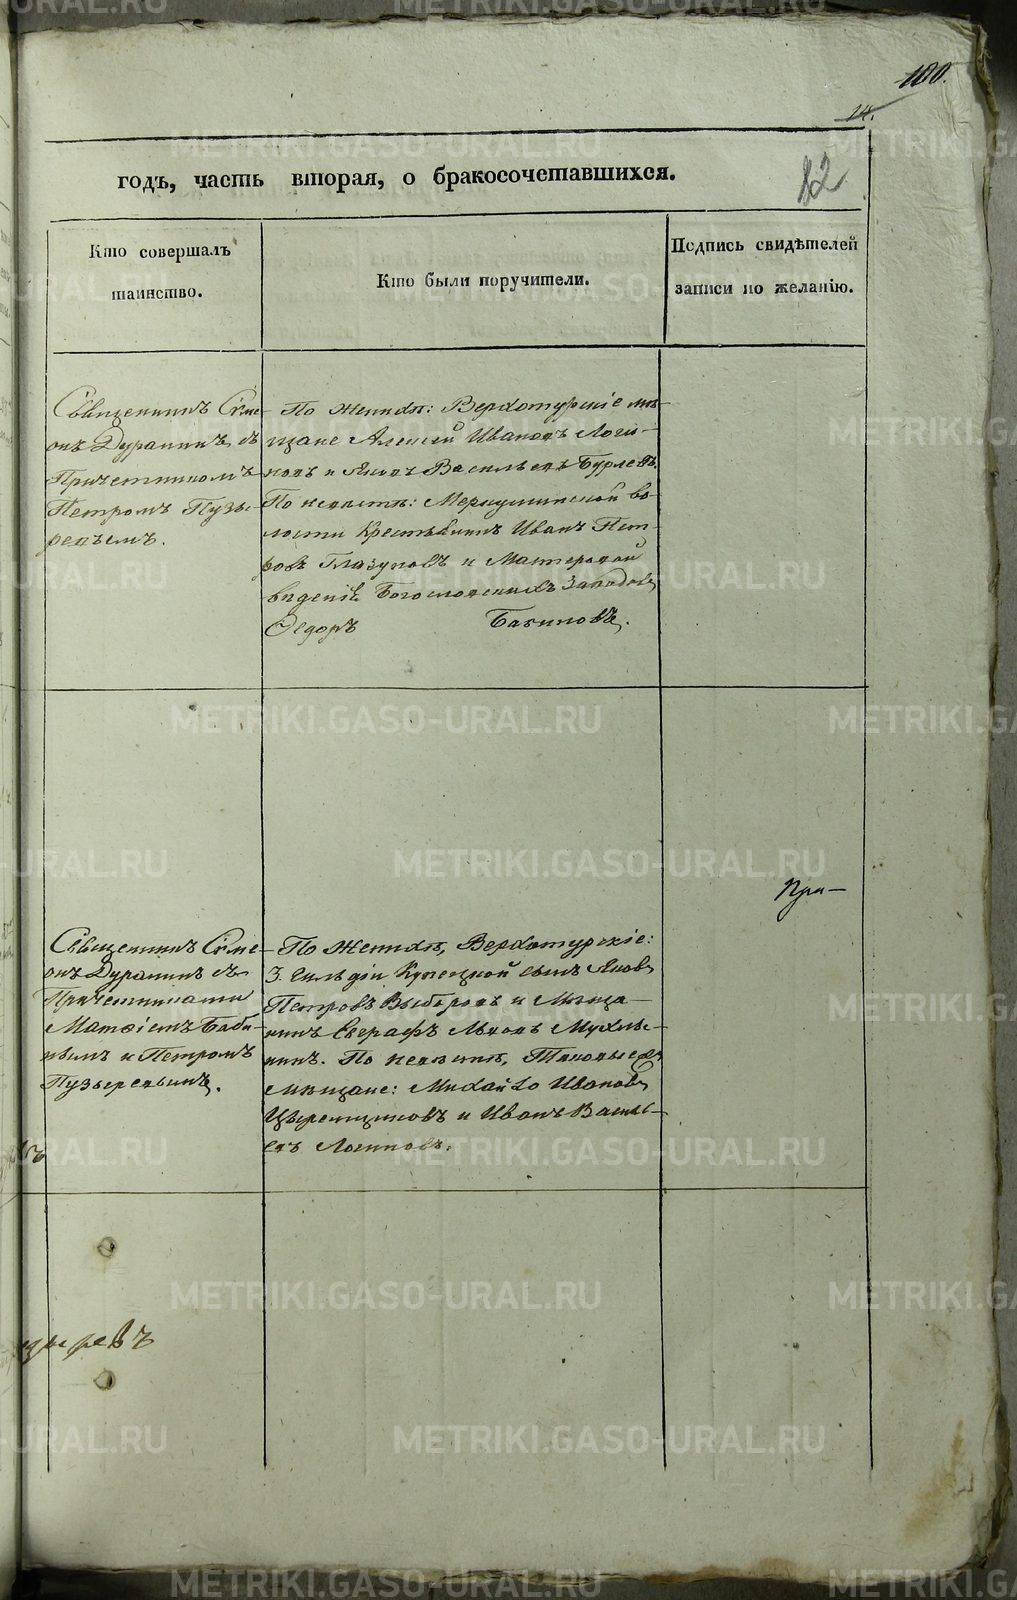 100.
14.
годъ, часть вторая, о бракосочетавшихся.
12
Кто совершалъ
таинство.
Кто были поручители.
Подпись свидѣтелей
записи по желанію.
Священникъ Симе-
онъ Дурагинъ съ
Причетникомъ
Петромъ Пузы-
ревымъ.
По женихѣ: Верхотурскіе мѣ-
щане Алексѣй Ивановъ Логи-
новъ и Яковъ Васильевъ Бурлевъ.
По невѣстѣ: Меркушинской во-
лости Крестьянинъ Иванъ Пет-
ровъ Глазуновъ и Мастеровой
вѣденія Богословскихъ Заводовъ
Ѳедоръ Бакиновъ.
При-
Священникъ Симе-
онъ Дурагинъ съ
Причетниками
Матѳіемъ Баби-
нымъ и Петромъ
Пузыревымъ.
По женихѣ, Верхотурскіе:
3. гильдіи Купецкой сынъ Яковъ
Петровъ Выборовъ и Мѣща-
нинъ Евграфъ Львовъ Мухлы-
нинъ. По невѣстѣ, Таковые же
мѣщане: Михайло Ивановъ
и Иванъ Василь-
евъ Логиновъ.
зыревъ
METRIKI.GASO-URAL.RU